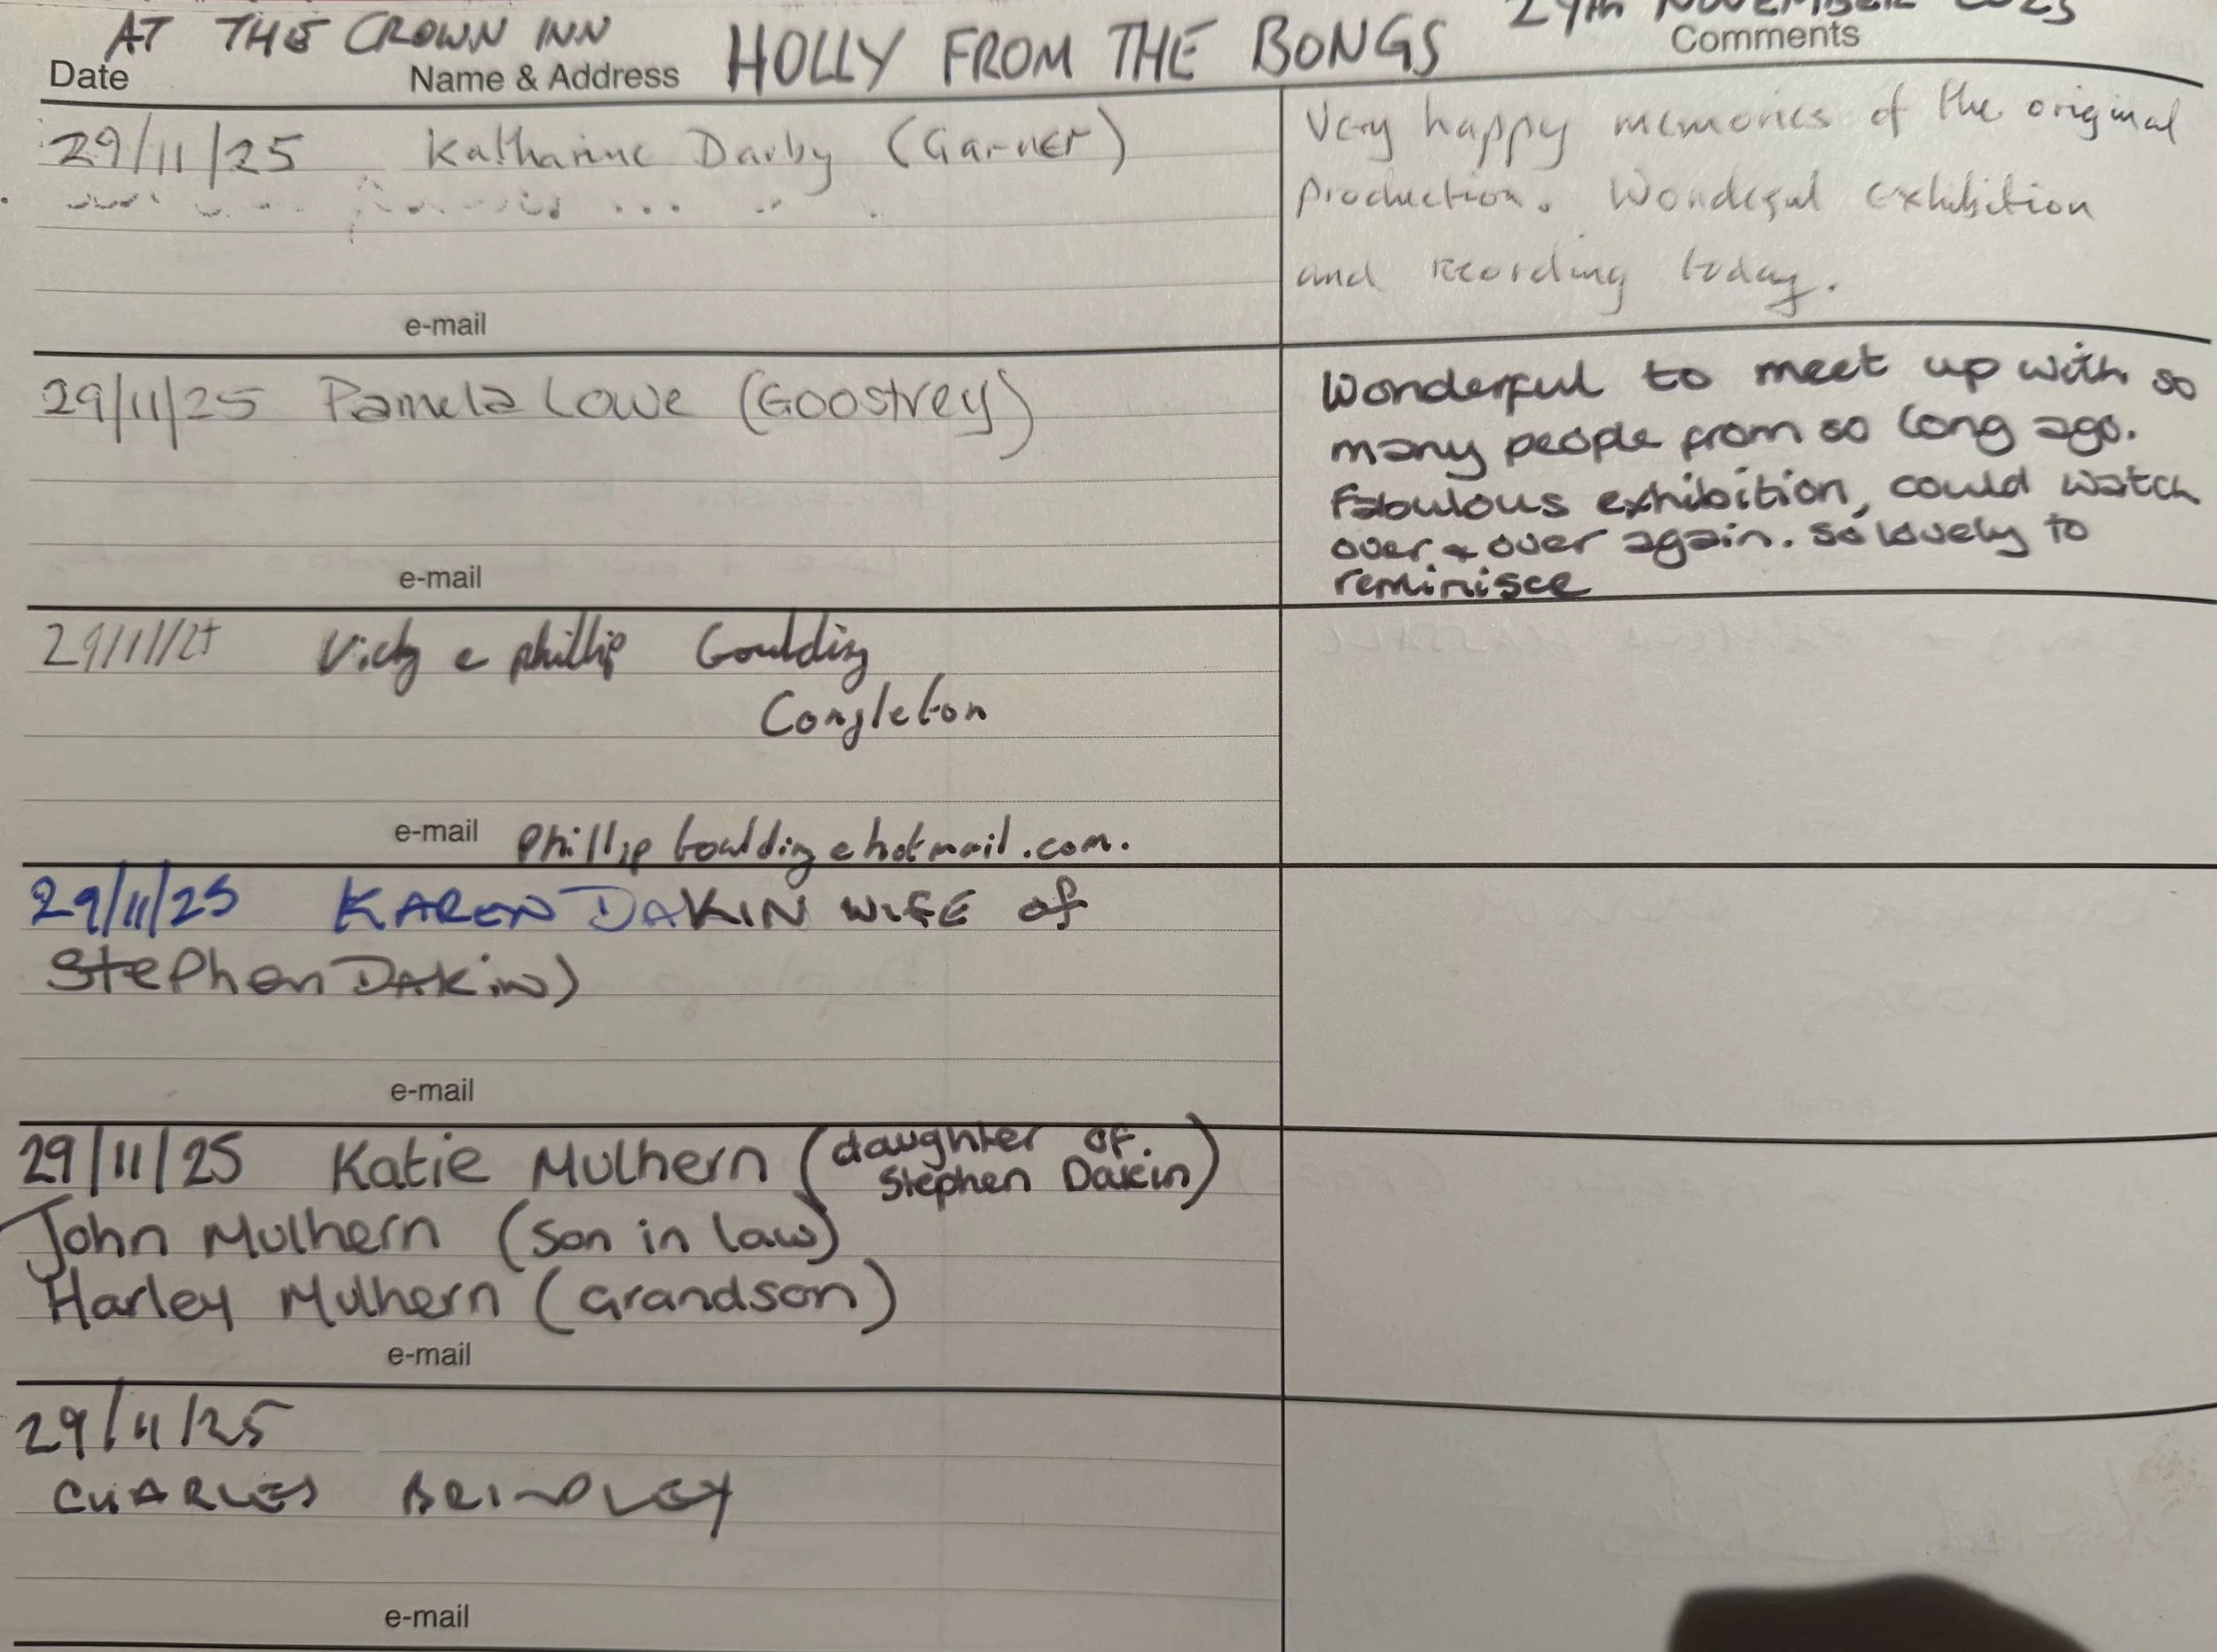 AT THE CROWN INN HOLLY FROM THE BONGS 29th NOVEMBER 2025
Date Name & Address Comments
29/11/25 Katharine Darby (Garner)
Very happy memories of the original
production. Wonderful exhibition
and recording today.
e-mail
29/11/25 Pamela Lowe (Goostrey)
Wonderful to meet up with so
many people from so long ago.
Fabulous exhibition, could watch
over & over again. So lovely to
reminisce
e-mail
29/11/25 Vicky e phillip Goulding
Congleton
e-mail Phillip Goulding@hotmail.com.
29/11/25 KAREN DAKIN WIFE of
Stephen DAKIN)
e-mail
29/11/25 Katie Mulhern (daughter of.
Stephen Dakin)
John Mulhern (son in law)
Harley Mulhern (Grandson)
e-mail
29/11/25
CHARLES BRINDLEY
e-mail